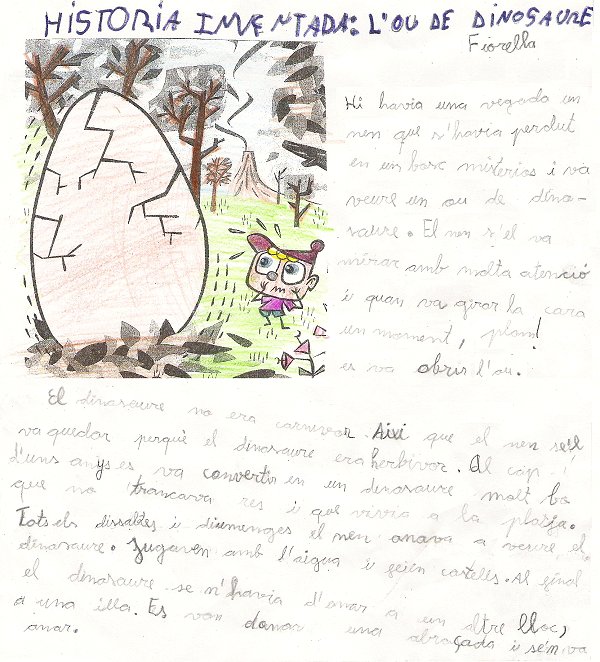 HISTORIA INVENTADA: L'OU DE DINOSAURE
Fiorella
Hi havia una vegada un
nen que s'havia perdut
en un bosc misterios i va
veure un ou de dino-
saure. El nen s'el va
mirar amb molta atenció
i quan va girar la cara
un moment, plam!
es va obrir l'ou.
El dinosaure no era carnivor. Aixi que el nen se'l
va quedar perquè el dinosaure era herbivor. Al cap
d'uns anys es va convertir en un dinosaure molt bo
que no trancava res i que vivia a la platja.
Tots els dissabtes i diumenges el nen anava a veure el
dinosaure. Jugaven amb l'aigua i feien castells. Al final
el dinosaure se n'havia d'anar a un altre lloc,
a una illa. Es van donar una abraçada i se'n va
anar.